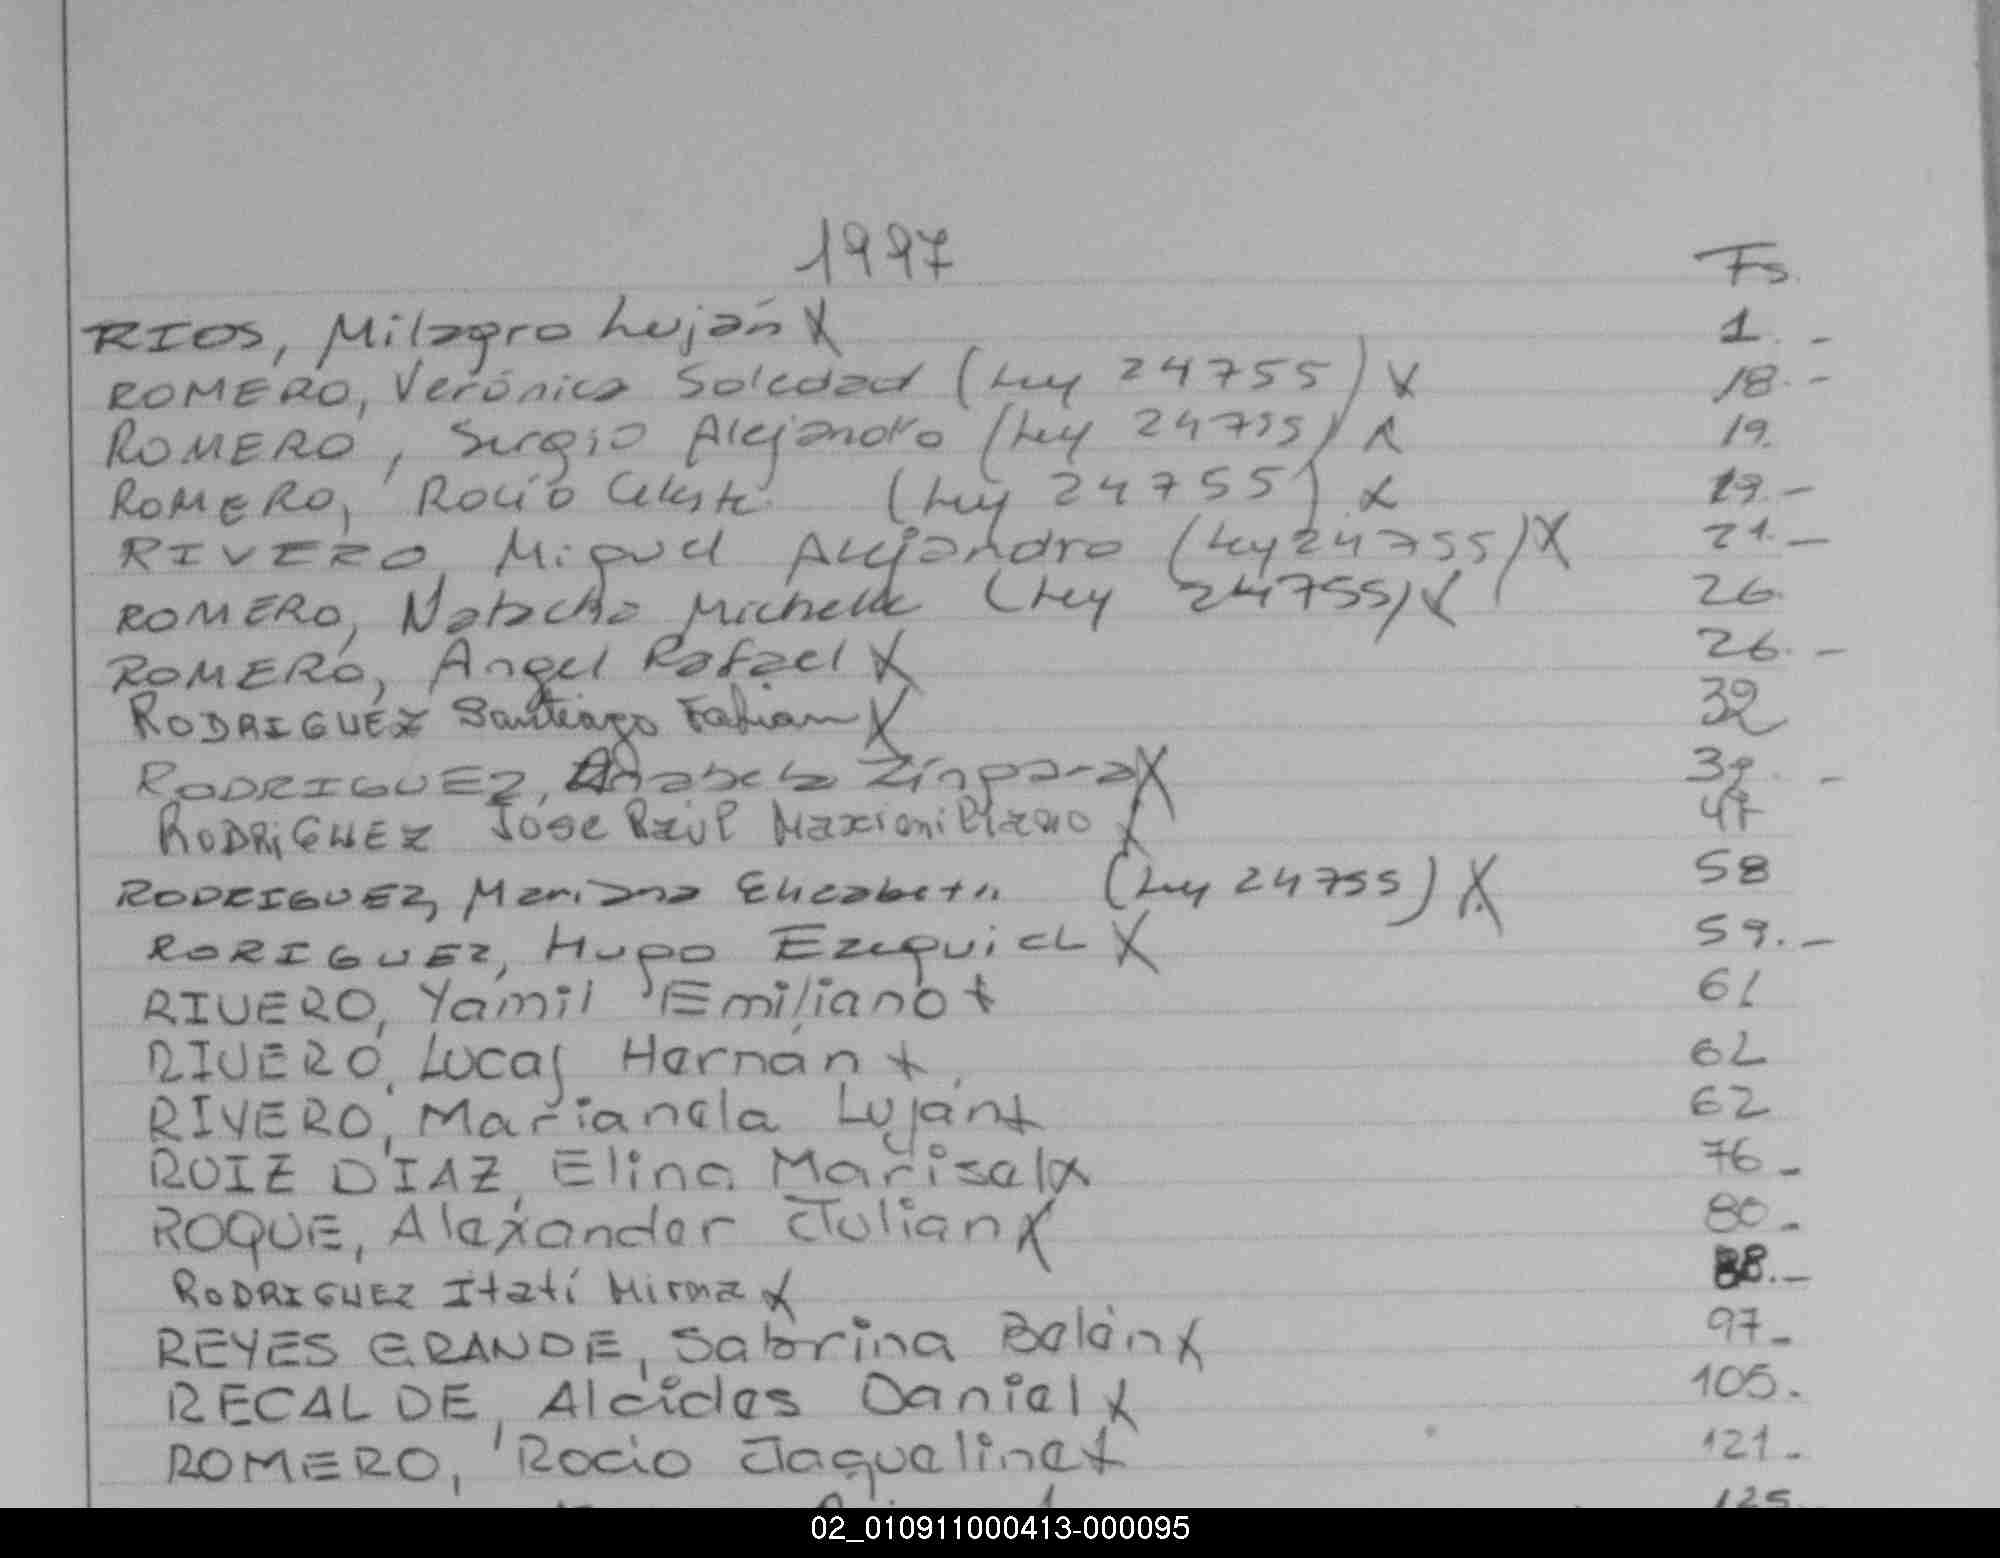 1997
Fs.
RIOS, Milagro Luján X 1. -
ROMERO, Verónica Soledad (Ley 24755) X 18. -
ROMERO, Sergio Alejandro (Ley 24755) X 19.
ROMERO, Rocío Celeste (Ley 24755) X 19. -
RIVERO Miguel Alejandro (Ley 24755) X 21. -
ROMERO, Natacha Michelle (Ley 24755) X 26.
ROMERO, Angel Rafael X 26. -
RODRIGUEZ Santiago Fabian X 32
RODRIGUEZ, Anabela X -
RODRIGUEZ Jose Raúl Maximiliano X 47
RODRIGUEZ, Mariana Elizabeth (Ley 24755) X 58
RORIGUEZ, Hugo Ezequiel X 59. -
RIVERO, Yamil Emiliano X 61
RIVERO, Lucas Hernán X 62
RIVERO, Marianela Luján X 62
RUIZ DIAZ, Elina Marisal X 76 -
ROQUE, Alexander Julian X 80 -
RODRIGUEZ Itatí Mirna X 88. -
REYES GRANDE, Sabrina Belén X 97 -
RECALDE, Alcides Daniel X 105.
ROMERO, Rocio Jaqueline X 121 -
125
02_010911000413-000095